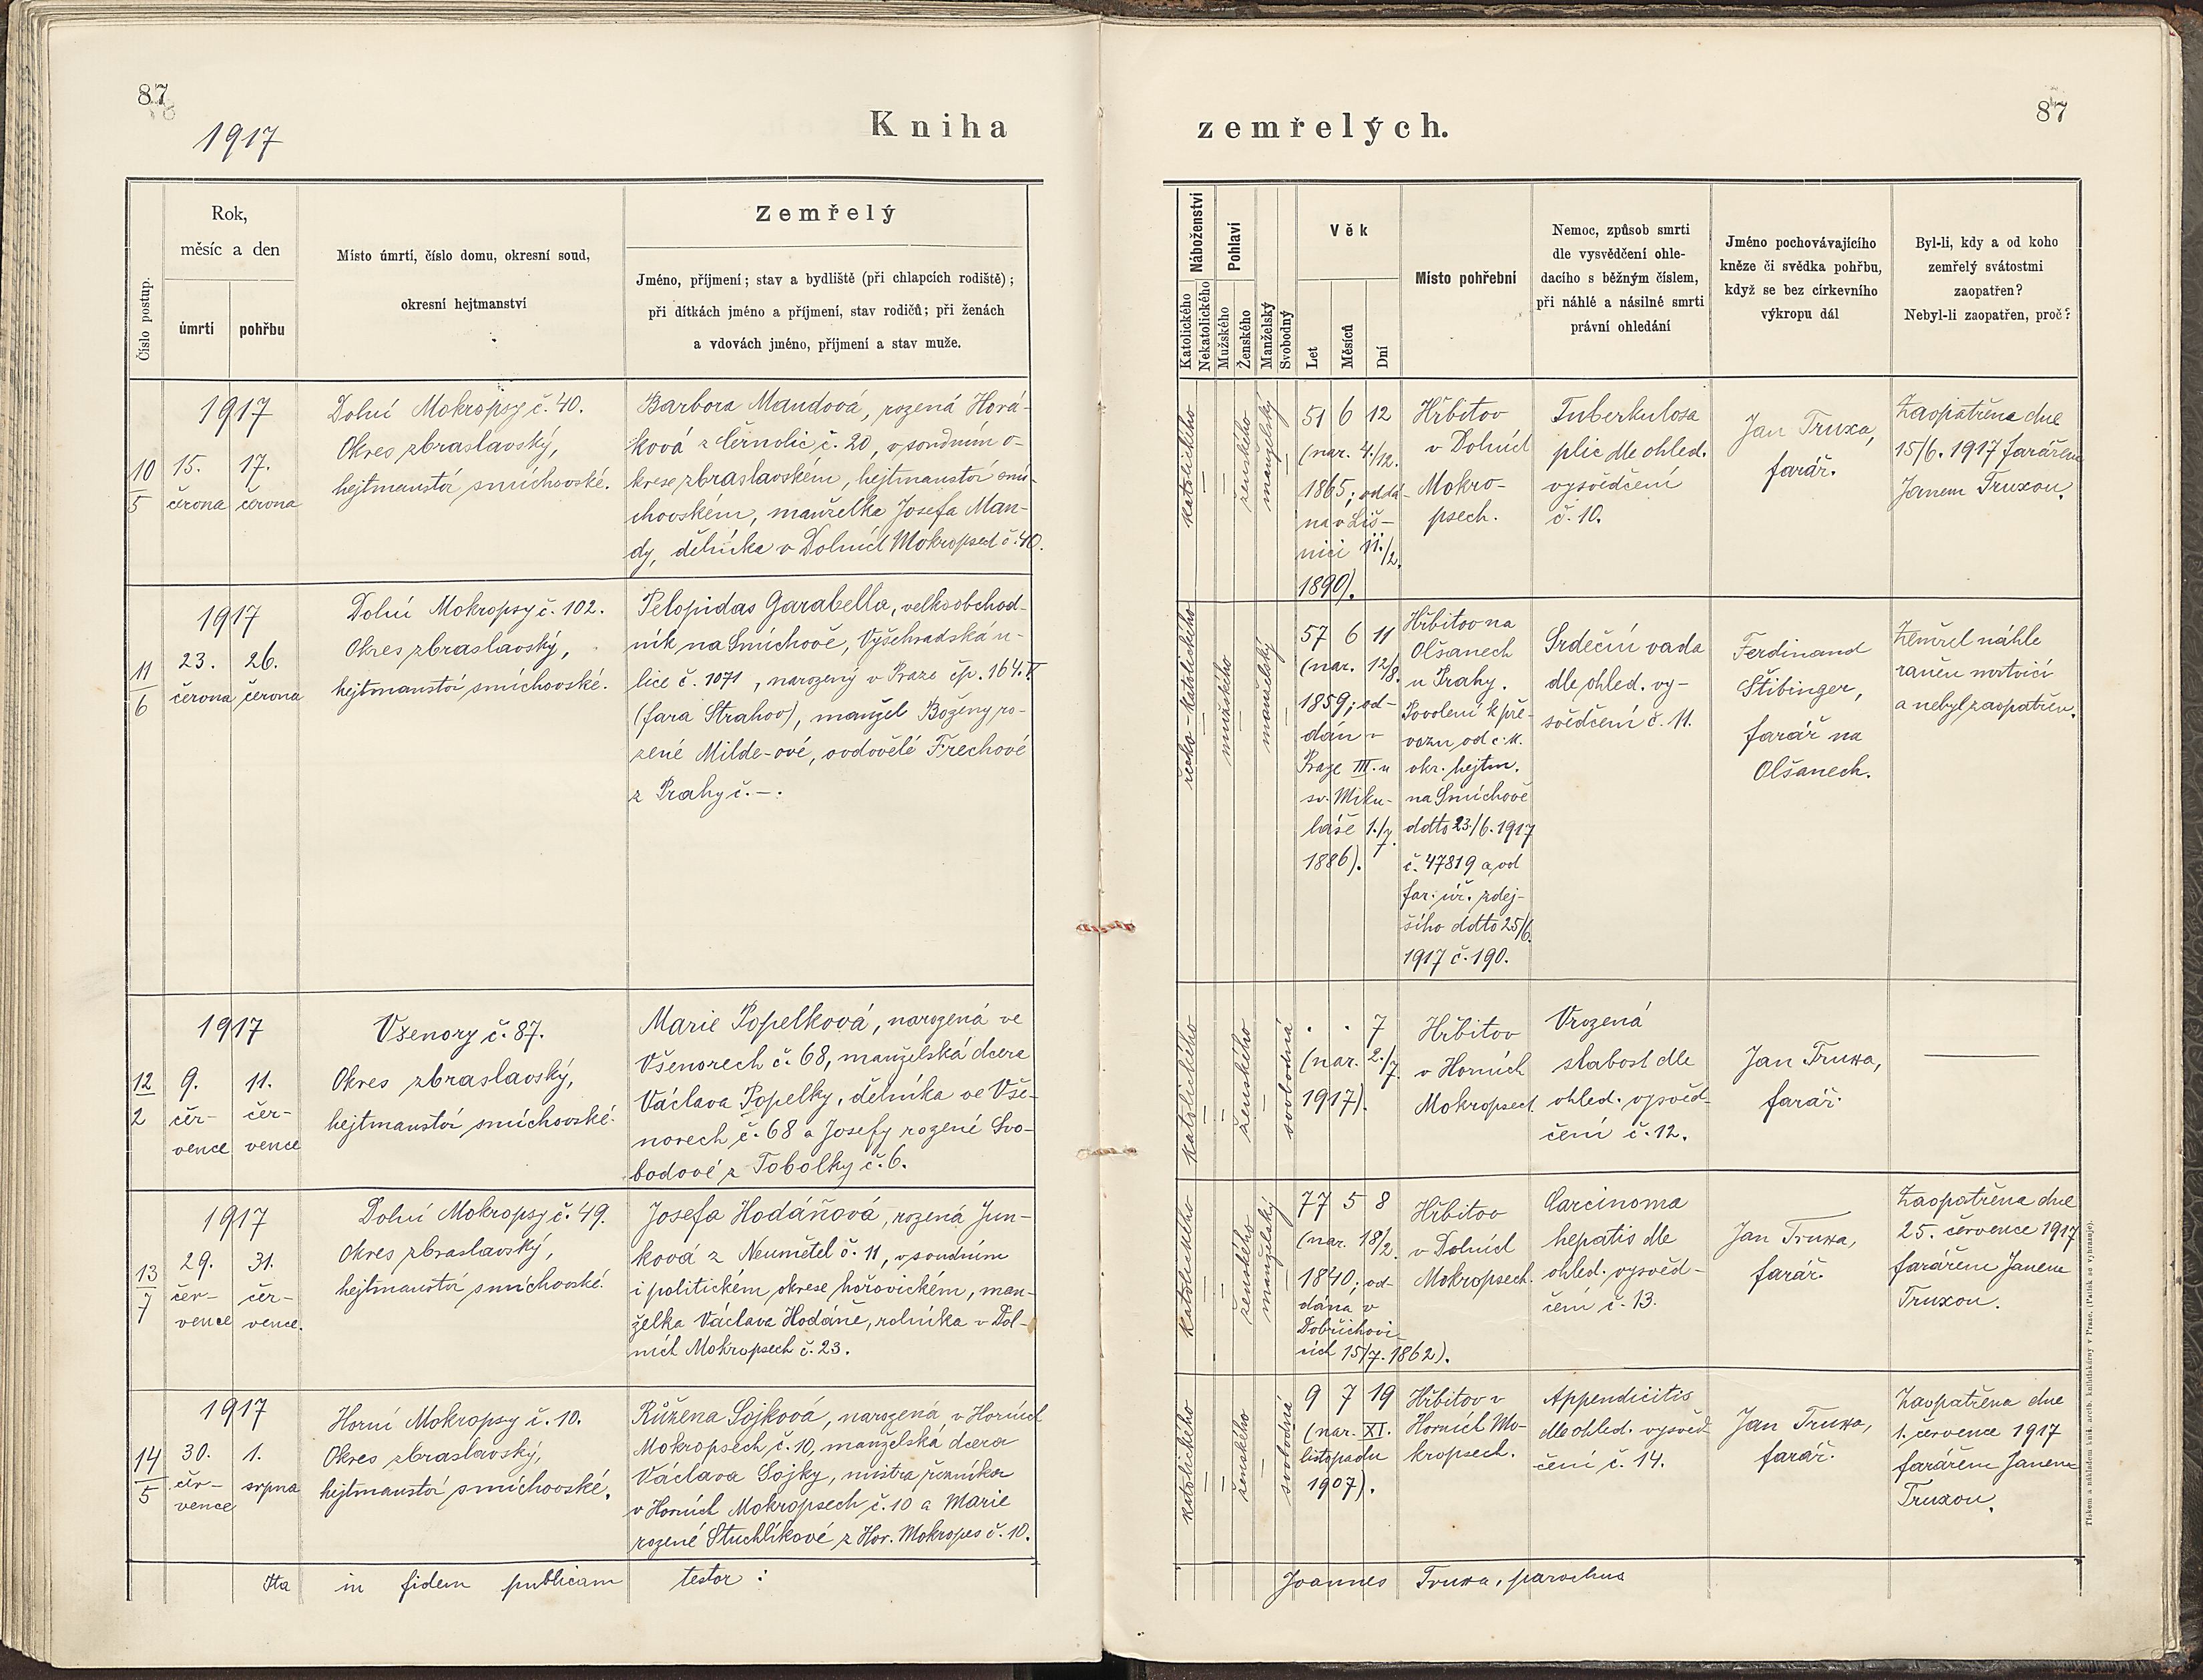 87
1917
Kniha
zemřelých.
87
Číslo postup.
Rok,
měsíc a den
úmrtí
pohřbu
Místo úmrtí, číslo domu, okresní soud,
okresní hejtmanství
Zemřelý
Jméno, příjmení; stav a bydliště (při chlapcích rodiště);
při dítkách jméno a příjmení, stav rodičů; při ženách
a vdovách jméno, příjmení a stav muže.
Náboženství
Katolického
Nekatolického
Pohlaví
Mužského
Ženského
Manželský
Svobodný
Věk
Let
Měsíců
Dní
Místo pohřební
Nemoc, způsob smrti
dle vysvědčení ohle-
dacího s běžným číslem,
při náhlé a násilné smrti
právní ohledání
Jméno pochovávajícího
kněze či svědka pohřbu,
když se bez církevního
výkropu dál
Byl-li, kdy a od koho
zemřelý svátostmi
zaopatřen?
Nebyl-li zaopatřen, proč?
10
5
1917
15.
června
17.
června
Dolní Mokropsy č. 40.
Okres zbraslavský,
hejtmanství smíchovské.
Barbora Mandová, rozená Horá-
ková z Černolic č. 20, v soudním o-
krese zbraslavském, hejtmanství smí-
chovském, manželka Josefa Man-
dy, dělníka v Dolních Mokropsech č. 40.
katolického
ženského
manželský
51 6 12
(nar. 4./12.
1865; oddá-
na v Liš-
nici 11./2.
1890).
Hřbitov
v Dolních
Mokro-
psech.
Tuberkulosa
plic dle ohled.
vysvědčení
č. 10.
Jan Truxa,
farář.
Zaopatřena dne
15/6. 1917 farářem
Janem Truxou.
11
6
1917
23.
června
26.
června
Dolní Mokropsy č. 102.
Okres zbraslavský,
hejtmanství smíchovské.
Pelopidas Garabella, velkoobchod-
ník na Smíchově, Vyšehradská u-
lice č. 1071, narozený v Praze čp. 164. V
(fara Strahov), manžel Boženy ro-
zené Milde-ové, ovdovělé Frechové
z Prahy č. –.
řecko-katolického
mužského
manželský
57 6 11
(nar. 12/8.
1859; od-
dán v
Praze III. u
sv. Miku-
láše 1./7.
1886).
Hřbitov na
Olšanech
u Prahy.
Povolení k pře-
vozu od c. k.
okr. hejtm.
na Smíchově
ddto 23/6. 1917
č. 47819 a od
far. úř. zdej-
šího ddto 25/6.
1917 č. 190.
Srdeční vada
dle ohled. vy-
svědčení č. 11.
Ferdinand
Stibinger,
farář na
Olšanech.
Zemřel náhle
raněn mrtvicí
a nebyl zaopatřen.
12
2
1917
9.
čer-
vence
11.
čer-
vence
Všenory č. 87.
Okres zbraslavský,
hejtmanství smíchovské.
Marie Popelková, narozená ve
Všenorech č. 68, manželská dcera
Václava Popelky, dělníka ve Vše-
norech č. 68 a Josefy rozené Svo-
bodové z Tobolky č. 6.
katolického
ženského
svobodná
. . 7
(nar. 2./7.
1917).
Hřbitov
v Horních
Mokropsech.
Vrozená
slabost dle
ohled. vysvěd-
čení č. 12.
Jan Truxa,
farář.
—
13
7
1917
29.
čer-
vence
31.
čer-
vence.
Dolní Mokropsy č. 49.
Okres zbraslavský,
hejtmanství smíchovské.
Josefa Hodáňová, rozená Jun-
ková z Neumětel č. 11, v soudním
i politickém okrese hořovickém, man-
želka Václava Hodáně, rolníka v Dol-
ních Mokropsech č. 23.
katolického
ženského
manželský
77 5 8
(nar. 18/2.
1840; od-
dána v
Dobřichovi-
cích 15/7. 1862).
Hřbitov
v Dolních
Mokropsech.
Carcinoma
hepatis dle
ohled. vysvěd-
čení č. 13.
Jan Truxa,
farář.
Zaopatřena dne
25. července 1917
farářem Janem
Truxou.
14
5
1917
30.
čer-
vence
1.
srpna
Horní Mokropsy č. 10.
Okres zbraslavský,
hejtmanství smíchovské.
Růžena Sojková, narozená v Horních
Mokropsech č. 10, manželská dcera
Václava Sojky, mistra řezníka
v Horních Mokropsech č. 10 a Marie
rozené Stuchlíkové z Hor. Mokropes č. 10.
katolického
ženského
svobodná
9 7 19
(nar. XI.
listopadu
1907).
Hřbitov v
Horních Mo-
kropsech.
Appendicitis
dle ohled. vysvěd-
čení č. 14.
Jan Truxa,
farář.
Zaopatřena dne
1. července 1917
farářem Janem
Truxou.
Ita in fidem publicam testor:
Joannes Truxa, parochus
Tiskem a nákladem kníž. arcib. knihtiskárny v Praze. (Patisk se vyhražuje).